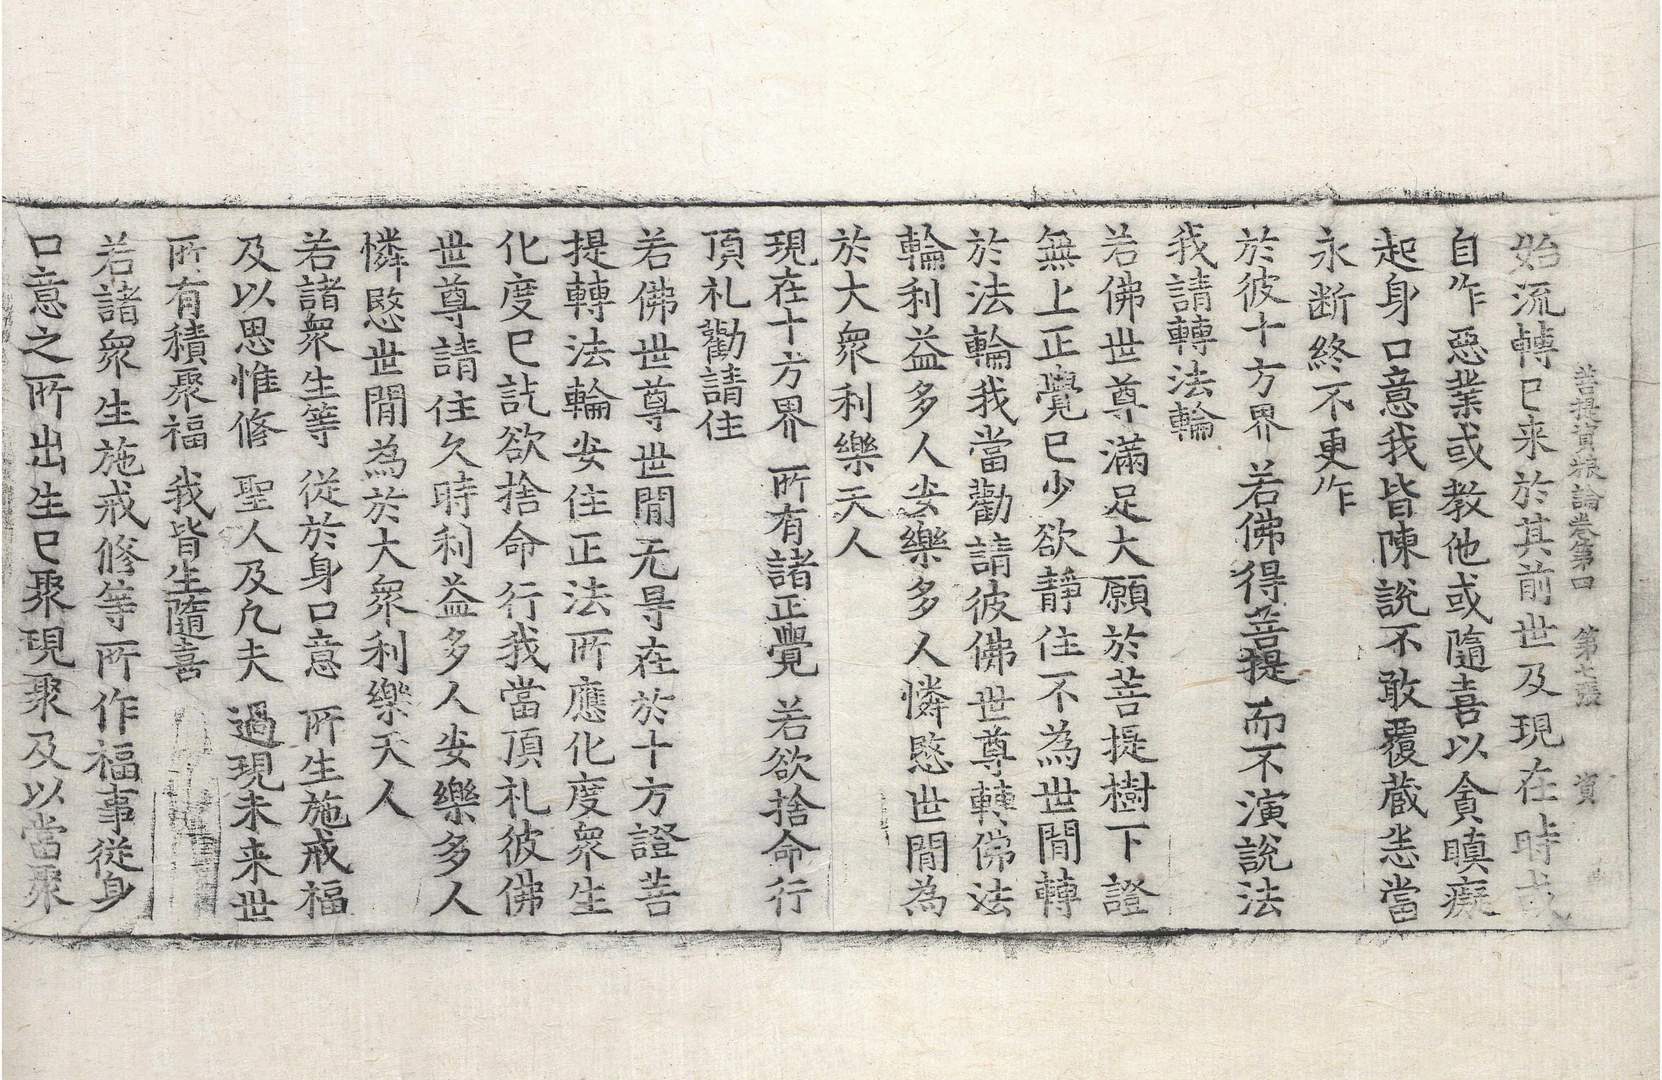 菩提資粮論卷第四　第七張　資
始流轉已来於其前世及現在時或
自作惡業或教他或隨喜以貪瞋癡
起身口意我皆陳說不敢覆藏悉當
永断終不更作
於彼十方界　若佛得菩提　而不演說法
我請轉法輪
若佛世尊滿足大願於菩提樹下證
無上正覺已少欲靜住不為世間轉
於法輪我當勸請彼佛世尊轉佛法
輪利益多人安樂多人憐愍世間為
於大衆利樂天人
現在十方界　所有諸正覺　若欲捨命行
頂礼勸請住
若佛世尊世間无㝵在於十方證菩
提轉法輪安住正法所應化度衆生
化度已訖欲捨命行我當頂礼彼佛
世尊請住久時利益多人安樂多人
憐愍世間為於大衆利樂天人
若諸衆生等　從於身口意　所生施戒福
及以思惟修　聖人及凡夫　過現未来世
所有積聚福　我皆生隨喜
若諸衆生施戒修等所作福事從身
口意之所出生已聚現聚及以當聚